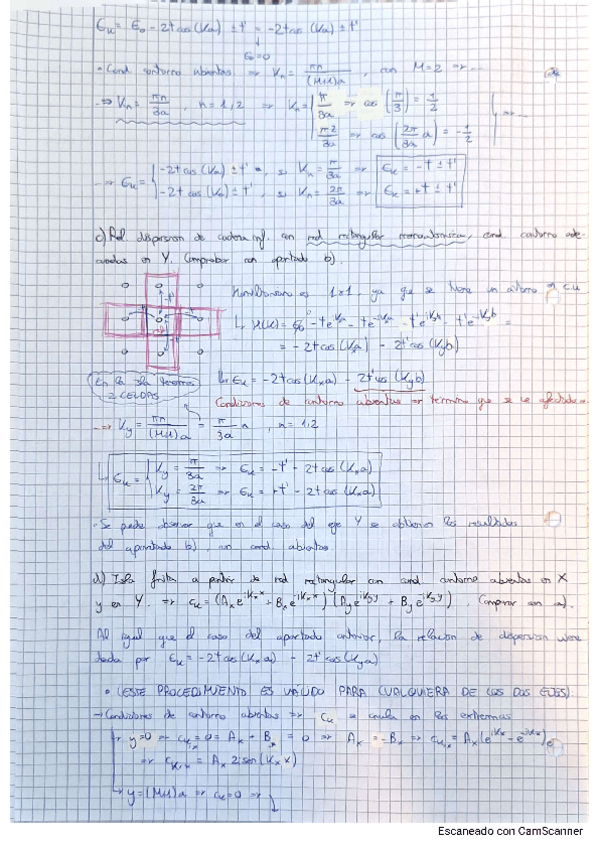 Єk = Є0 - 2t cos(Ka) ± t' = -2t cos(Ka) ± t'
Є0=0
· Cond contorno abiertas ⇒ Kn = πn/(M+1)a , con M=2 ⇒ ...
...⇒ Kn = πn/3a , n=1,2 ⇒ Kn = { π/3a ⇒ cos(π/3) = 1/2
π2/3a ⇒ cos(2π/3a a) = -1/2 } ⇒ ...
...⇒ Єk = { -2t cos(Ka) ± t' , si Kn = π/3a ⇒ Єk = -t ± t'
-2t cos(Ka) ± t' , si Kn = 2π/3a ⇒ Єk = +t ± t'
c) Rel dispersion de cadena inf. con red rectangular monoatómica, cond contorno ade-
cuadas en Y. Comprobar con apartado b).
Hamiltoniano es 1x1, ya que se tiene un átomo en c.u
↳ H(K) = Є0 - te^iKxa - te^-iKxa - t'e^iKyb - t'e^-iKyb =
= -2t cos(Kxa) - 2t' cos(Kyb)
En la isla tenemos
2 CELDAS
↳ Єk = -2t cos(Kxa) - 2t' cos(Kyb)
Condiciones de contorno abiertas ⇒ término que se ve afectado
...⇒ Ky = πn/(M+1)a = π/3a n , n=1,2
↳ Єk = { Ky = π/3a ⇒ Єk = -t' - 2t cos(Kxa)
Ky = 2π/3a ⇒ Єk = +t' - 2t cos(Kxa)
· Se puede observar que en el caso del eje Y se obtienen los resultados
del apartado b), con cond. abiertas
d) Isla finita a partir de red rectangular con cond contorno abiertas en X
y en Y. ⇒ ck = (Ax e^iKx x + Bx e^-iKx x) (Ay e^iKy y + By e^-iKy y). Comparar con a).
Al igual que el caso del apartado anterior, la relación de dispersion viene
dada por Єk = -2t cos(Kxa) - 2t' cos(Kya)
• (ESTE PROCEDIMIENTO ES VÁLIDO PARA CUALQUIERA DE LOS DOS EJES)
→ Condiciones de contorno abiertas ⇒ ck se anula en los extremos
↳ y=0 ⇒ ck,x = 0 = Ax + Bx = 0 ⇒ Ax = -Bx ⇒ ck,x = Ax (e^iKx - e^-iKx)
⇒ ck,x = Ax 2i sen(Kx x)
↳ y=(M+1)a ⇒ ck=0 ⇒
Escaneado con CamScanner